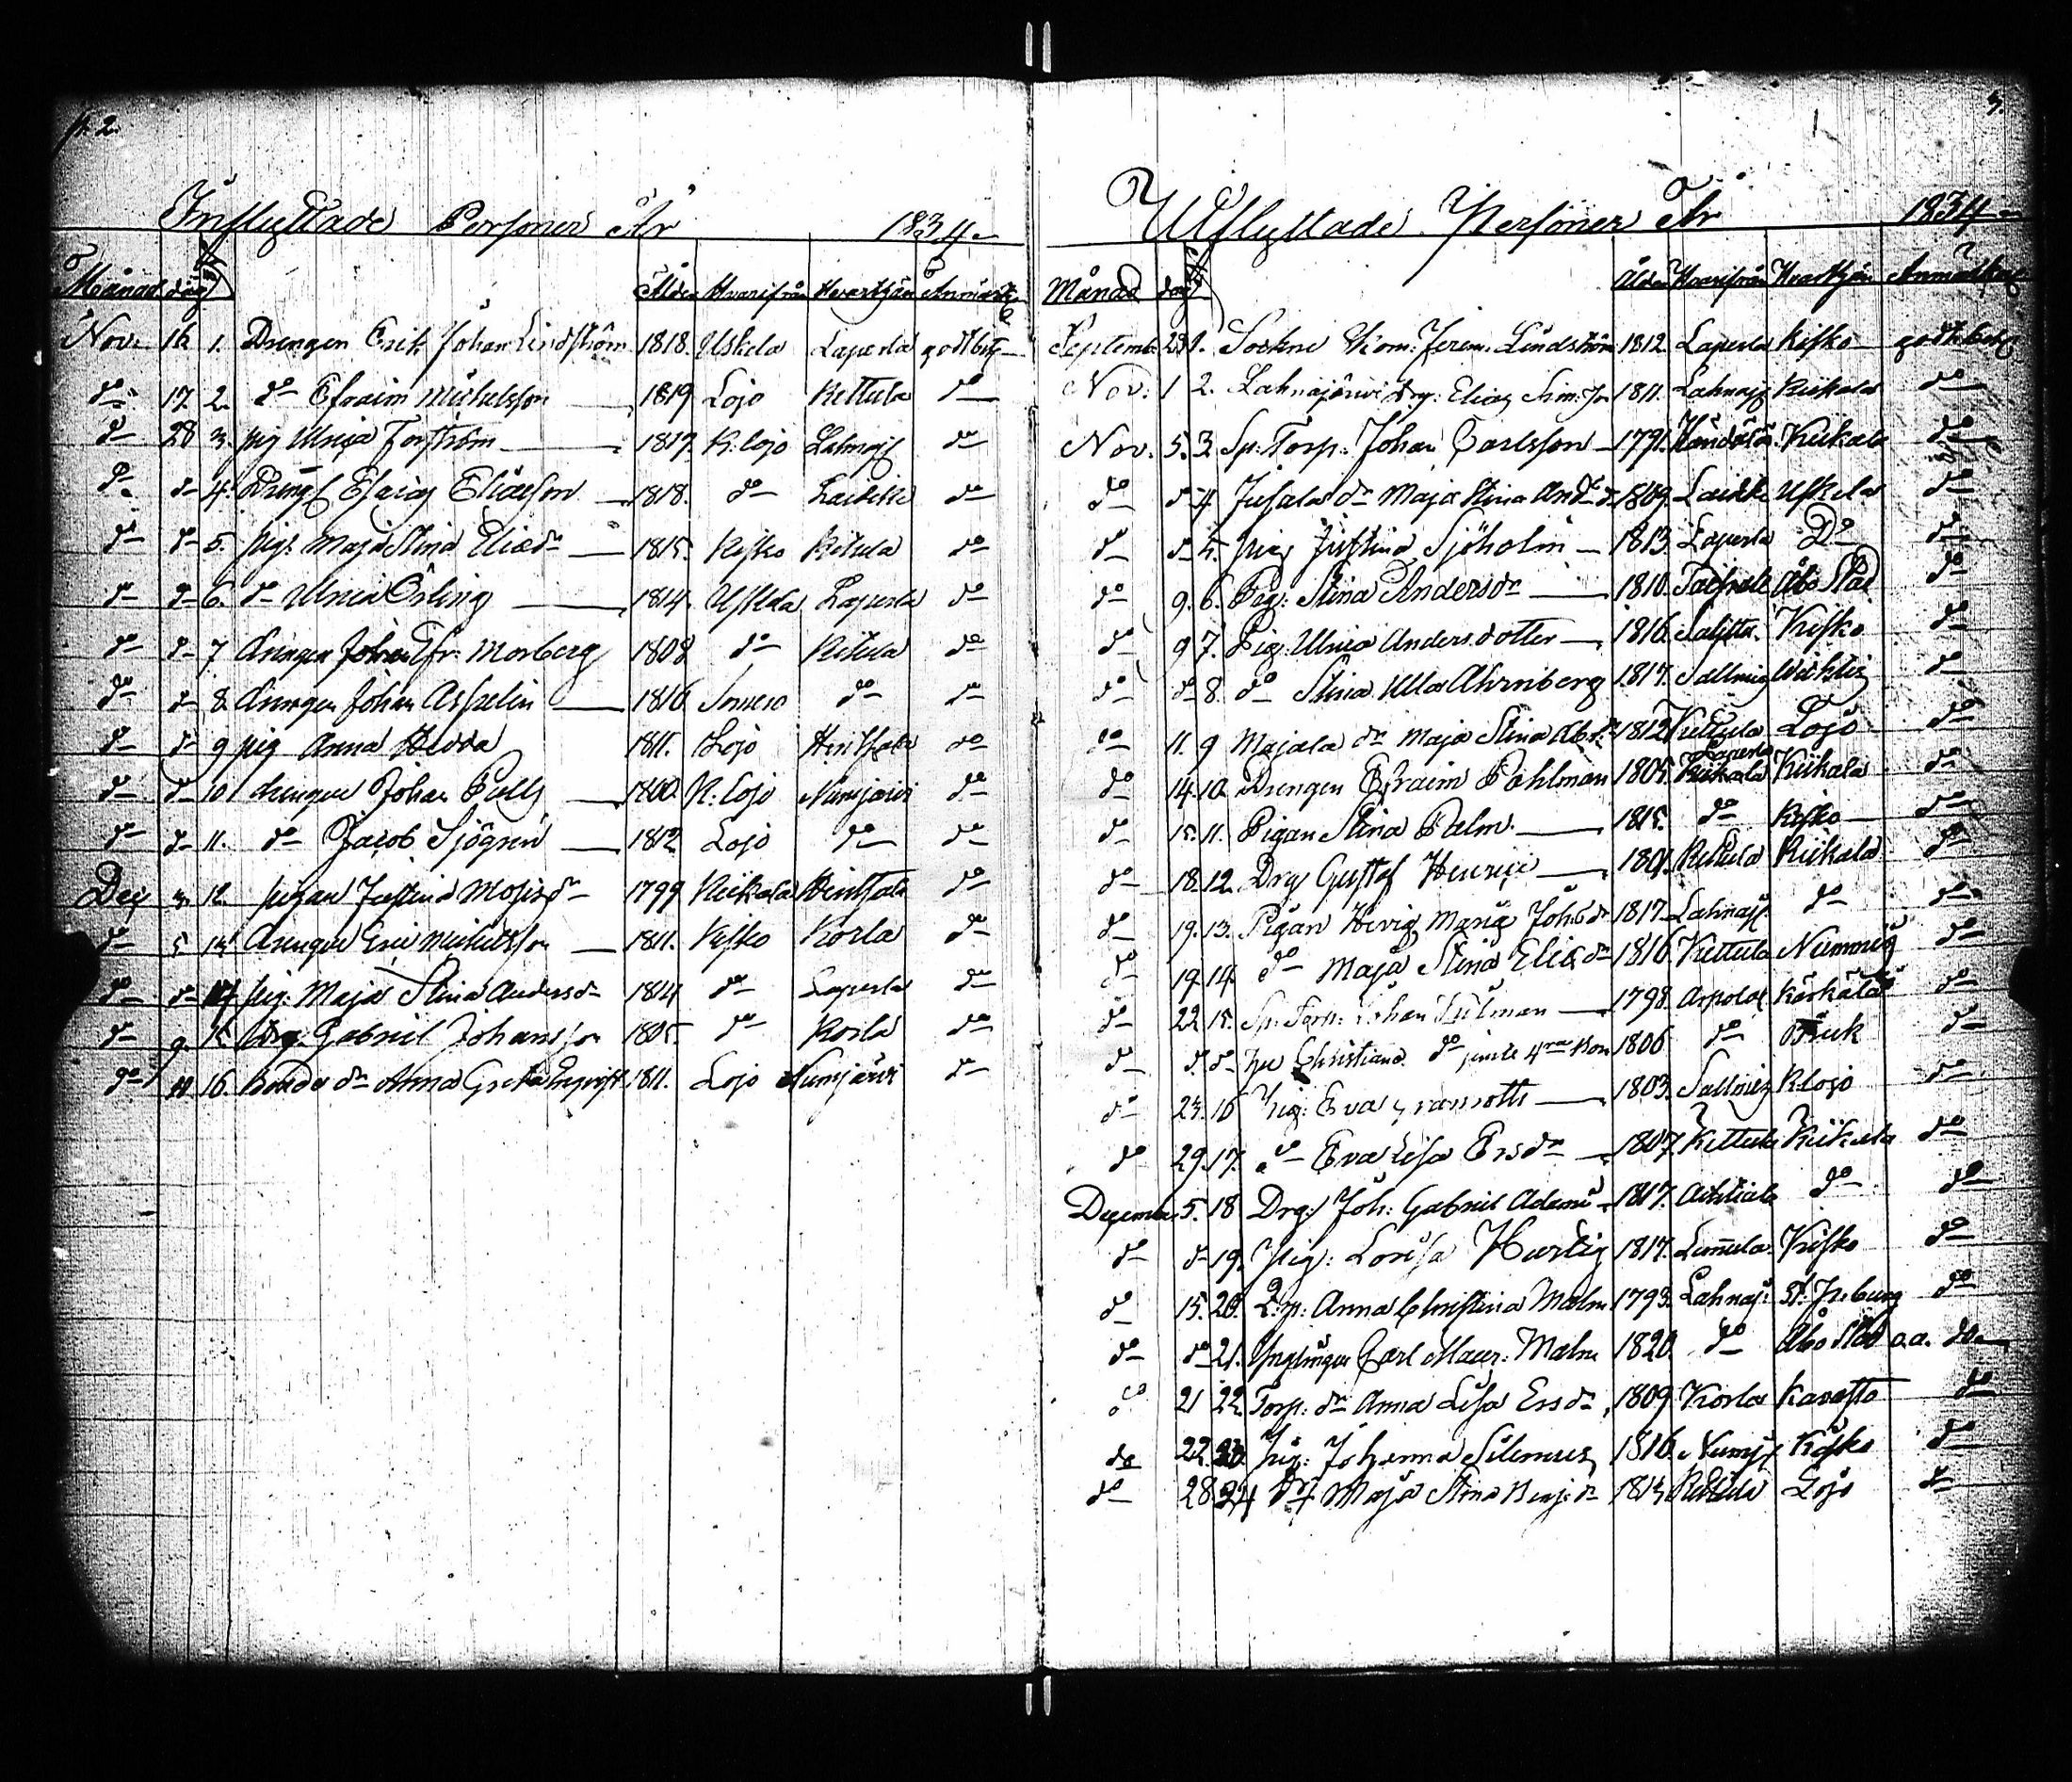 p. 2.
Inflyttade Personer År 1834
Månad dag Ålder Hvarifrån Hvarthän Anmärk
Nov. 16 1. Drengen Erik Johan Lindström 1818. Uskela Laperla godt betyg
do 17. 2. do Efraim Michelsson 1819 Lojo Kettula do
do 28 3. pig Ulrica Forström 1817. K. Lojo Lahnajj do
do do 4. Dreng Esaias Eliæson 1818. do Laidike do
do do 5. pig. Maja Stina Eliædr 1815. Kisko Kitula do
do do 6. do Ulrica Örling 1814. Uskela Laperla do
do do 7 drengen Johan Fr: Morberg 1808 do Kitula do
do do 8 drengen Johan Asplin 1816 Somero do do
do do 9 pig Anna Hedda 1811. Lojo Hintsala do
do do 10 drengen Johan Pull 1800. K. Lojo Numjärvi do
do do 11. do Jacob Sjögren 1812 Lojo do do
Dec 3. 12. pigan Justina Mosisdr 1799 Kiikala Hintsala do
do 5 13 drengen Eric Michelsson 1811. Kisko Korla do
do do 14 pig: Maja Stina Andersdr 1814 do Laperla do
do 9. 15 drg. Gabriel Johansson 1805. do Korla do
do 16. Bonde dr Anna Greta 1811. Lojo Numjärvi do
3.
Utflyttade Personer År 1834
Månad dag Ålder Hvarifrån Hvarthän Anmärkning
Septemb. 29 1. Sockne Jerem. Lindström 1812 Laperla Kisko godt betyg
Nov. 1 2. Lahnajärvi drg: Elias Sim: Jo 1811. Lahnajj Kiikala do
Nov. 5. 3. Sp: Torp: Johan Carlsson 1791. Kiikala do
do do 4 Jusala dr Maja Stina And: dr 1809. Laidike Uskela do
do do 5. pig Justina Sjöholm 1813. Laperla Do do
do 9. 6. Pig: Stina Andersdr 1810. Åbo Stad do
do 9 7. Pig: Ulrica Andersdotter 1816. Salitta. Kisko do
do do 8. do Stina Ulla Ahrnberg 1817. Sallmig Wichtis do
do 11. 9 Majala dr Maja Stina Abrdr 1812 Kettula Lojo do
do 14. 10. Drengen Efraim Pahlman 1805. Laperla Kiikala Kiikala do
do 15. 11. Pigan Stina Palm. 1815. do Kisko do
do 18. 12. Drg Gustaf Henric 1801. Kettula Kiikala do
do 19. 13. Pigan Hevig Maria Joh:dr 1817. Lahnajj. do do
do 19. 14. do Maja Stina Eliædr 1816. Kettula Nummis do
do 22 15. Sp: Torp: Johan 1798. Arpola Karkala do
do do do hu Christiana do jemte 4ra Barn 1806 do Bruk do
do 23. 16 Pig: Eva 1803. Sallmig K lojo do
do 29. 17. do Eva Lisa Ersdr 1807 Kettula Kiikala do
December 5. 18 Drg: Joh: Gabriel Adams 1817. do do
do do 19. Pig: Lovisa Hurtig 1817. Lumula Kisko do
do 15. 20. Anna Christina Malm 1793. Lahnaj: St. Prburg do
do do 21. Ynglingen Carl Maur: Malm 1820. do Åbo Stad a.a. do
do 21 22 Torp: dr Anna Lisa Ersdr 1809. Korla Karusto do
do 22. 23 Pig: Johanna Silenius 1816. Numjj Kisko do
do 28 24 Maja Stina Benj:dr Lojo do